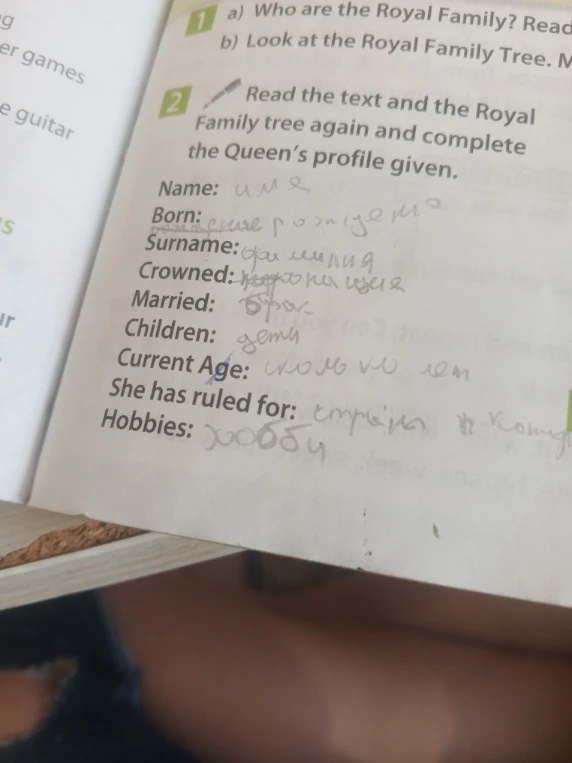 g
er games
e guitar
s
ur
1 a) Who are the Royal Family? Read
b) Look at the Royal Family Tree. M
2 Read the text and the Royal
Family tree again and complete
the Queen's profile given.
Name: имя
Born:
Surname: фамилия
Crowned:
Married: брак
Children: дети
Current Age: сколько лет
She has ruled for:
Hobbies: хобби